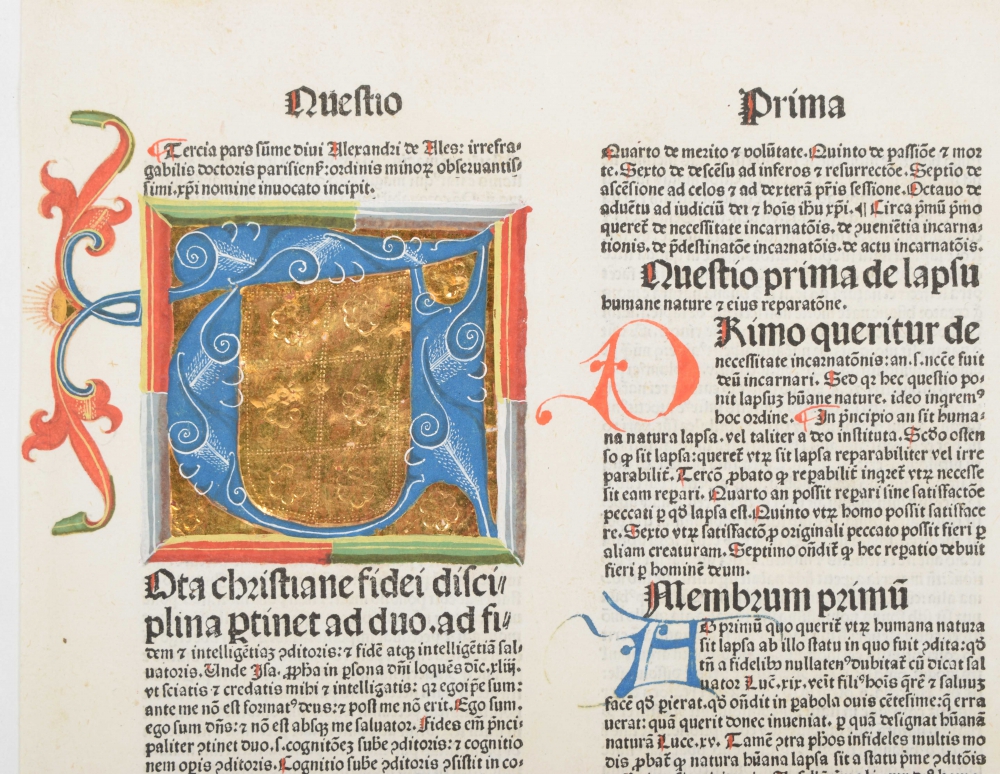 Questio
Prima
Tercia pars sūme diui Alexandri de Ales: irrefra⸗
gabilis doctoris parisienꝭ: ordinis minoꝝ obseruantis⸗
simi. xp̄i nomine inuocato incipit.
T
Ota christiane fidei disci⸗
plina ꝑtinet ad duo. ad fi⸗
dem ⁊ intelligētiaꝫ ꝯditoris: ⁊ fidē atqꝫ intelligētiā sal⸗
uatoris. Unde Isa. ꝓpha in ꝑsona dn̄i loquēs dic. xliij.
vt sciatis ⁊ credatis mihi ⁊ intelligatis: qꝛ ego ip̄e sum:
ante me nō est formatꝰ deus: ⁊ post me nō erit. Ego sum.
ego sum dn̄s: ⁊ nō est absqꝫ me saluator. Fides em̄ p̄nci⸗
paliter ꝯtinet duo. s. cognitōeꝫ sube ꝯditoris: ⁊ cognitio
nem opis ꝯditoris. Cognitio sube ꝯditoris ꝯsistit in co⸗
Quarto de merito ⁊ volūtate. Quinto de passiōe ⁊ mor
te. Sexto de descēsu ad inferos ⁊ resurrectōe. Septio de
ascēsione ad celos ⁊ ad dexterā pr̄is sessione. Octauo de
aduētu ad iudiciū dei ⁊ hoīs ihu xp̄i. ¶ Circa pmū pmo
queret̄ de necessitate incarnatōis. de ꝯueniētia incarna⸗
tionis. de p̄destinatōe incarnatōis. de actu incarnatōis.
Questio prima de lapsu
humane nature ⁊ eius reparatōne.
P
Rimo queritur de
necessitate incarnatōnis: an. s. nc̄ce fuit
deū incarnari. Sed qꝛ hec questio po⸗
nit lapsuꝫ hūane nature. ideo inqrem̄ꝰ
hoc ordine. ¶ In p̄ncipio an sit huma⸗
na natura lapsa. vel taliter a deo instituta. Scd̄o osten
so ꝙ sit lapsa: queret̄ vtꝝ sit lapsa reparabiliter vel irre
parabilit̄. Tercō ꝓbato ꝙ reꝑabilit̄ inqret̄ vtꝝ necesse
sit eam reꝑari. Quarto an possit reꝑari sine satisfactōe
peccati ꝑ qd̄ lapsa est. Quinto vtꝝ homo possit satisface
re. Sexto vtꝝ satisfactō ꝓ originali peccato possit fieri ꝑ
aliam creaturam. Septimo on̄dit̄ ꝙ hec reꝑatio debuit
fieri ꝑ hominē deum.
Membrum primū
A
D primū quo querit̄ vtꝝ humana natura
sit lapsa ab illo statu in quo fuit ꝯdita: qd̄
tn̄ a fidelibꝰ nullatenꝰ dubitat̄ cū dicat sal
uator Luc̄. xix. veit̄ filiꝰ hoīs qr̄e ⁊ saluuꝫ
face qd̄ ꝑierat. qd̄ on̄dit in ꝑabola ouis cētesime: q̄ erra
uerat: quā querit donec inueniat. ꝑ quā designat̄ hūanā
naturā Luce. xv. Tamē ꝯtra ph̄os infideles multis mo
dis ꝓbat̄ ꝙ natura hūana lapsa sit a statu pm̄e ꝯditōis